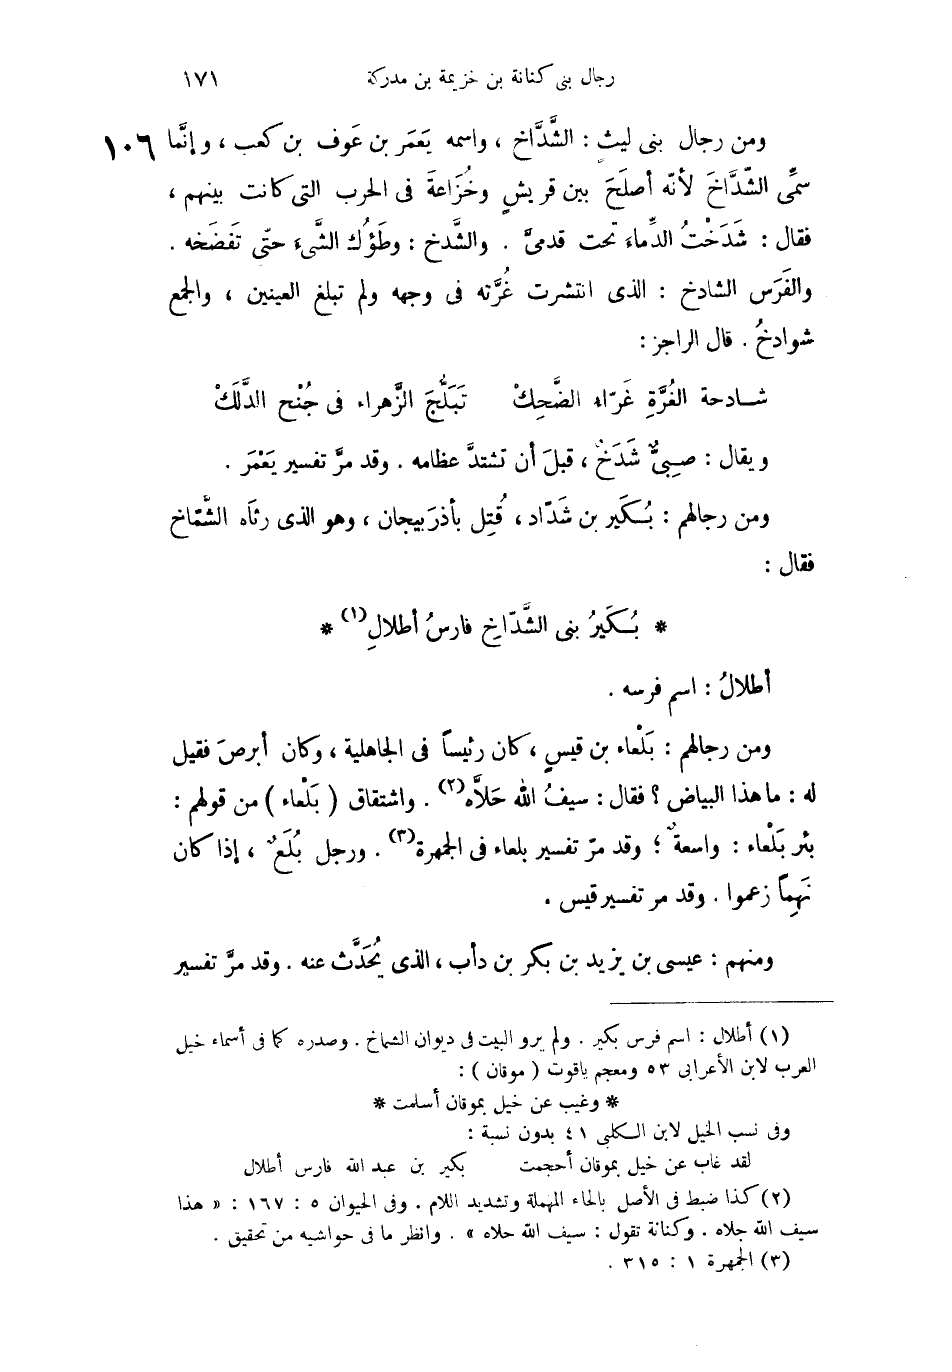 رجال بنى كنانة بن خزيمة بن مدركة ١٧١
ومن رجال بنى ليثٍ : الشَّدَّاخ ، واسمه يَعمَر بن عَوف بن كعب ، وإنَّما ١٠٦
سمِّى الشّدَّاخَ لأنّه أصلَحَ بين قريشٍ وخُزَاعةَ فى الحرب التى كانت بينهم ،
فقال : شَدَخْتُ الدِّماءَ تحت قدمىَّ . والشَّدخ : وطؤُك الشَّىءَ حتّى تَفضَخه .
والفَرَس الشادخ : الذى انتشرت غُرَّته فى وجهه ولم تبلغ العينين ، والجمع
شوادخُ . قال الراجز :
شـادحة الغُرَّةِ غَرّاء الضَّحِكْ تَبَلُّجَ الزَّهراء فى جُنْح الدَّلَكْ
ويقال : صبىٌّ شَدَخٌ ، قبلَ أن تشتدَّ عظامه . وقد مرَّ تفسير يَعْمَر .
ومن رجالهم : بُـكَير بن شَدّاد ، قُتِل بأذرَبيجان ، وهو الذى رثَاه الشَّمّاخ
فقال :
* بُـكَيرُ بنى الشَّدّاخِ فارسُ أطلالِ(١) *
أطلالُ : اسم فرسه .
ومن رجالهم : بَلْعاء بن قيسٍ ، كان رئيساً فى الجاهلية ، وكان أبرصَ فقيل
له : ما هذا البياض ؟ فقال : سيفُ اللّه حَلاَّه(٢) . واشتقاق ( بَلْعاء ) من قولهم :
بئر بَلْعاء : واسعةٌ ؛ وقد مرّ تفسير بلعاء فى الجمهرة(٣) . ورجل بُلَعٌ ، إذا كان
نَهِماً زعموا . وقد مر تفسير قيس .
ومنهم : عيسى بن يزيد بن بكر بن دأب ، الذى يُحَدَّث عنه . وقد مرَّ تفسير
(١) أطلال : اسم فرس بكير . ولم يرو البيت فى ديوان الشماخ . وصدره كما فى أسماء خيل
العرب لابن الأعرابى ٥٣ ومعجم ياقوت ( موقان ) :
* وغيب عن خيل بموقان أسلمت *
وفى نسب الخيل لابن الـكلبى ٤١ بدون نسبة :
لقد غاب عن خيل بموقان أحجمت بكير بن عبد اللّه فارس أطلال
(٢) كذا ضبط فى الأصل بالحاء المهملة وتشديد اللام . وفى الحيوان ٥ : ١٦٧ : « هذا
سيف اللّه جلاه . وكنانة تقول : سيف اللّه حلاه » . وانظر ما فى حواشيه من تحقيق .
(٣) الجمهرة ١ : ٣١٥ .